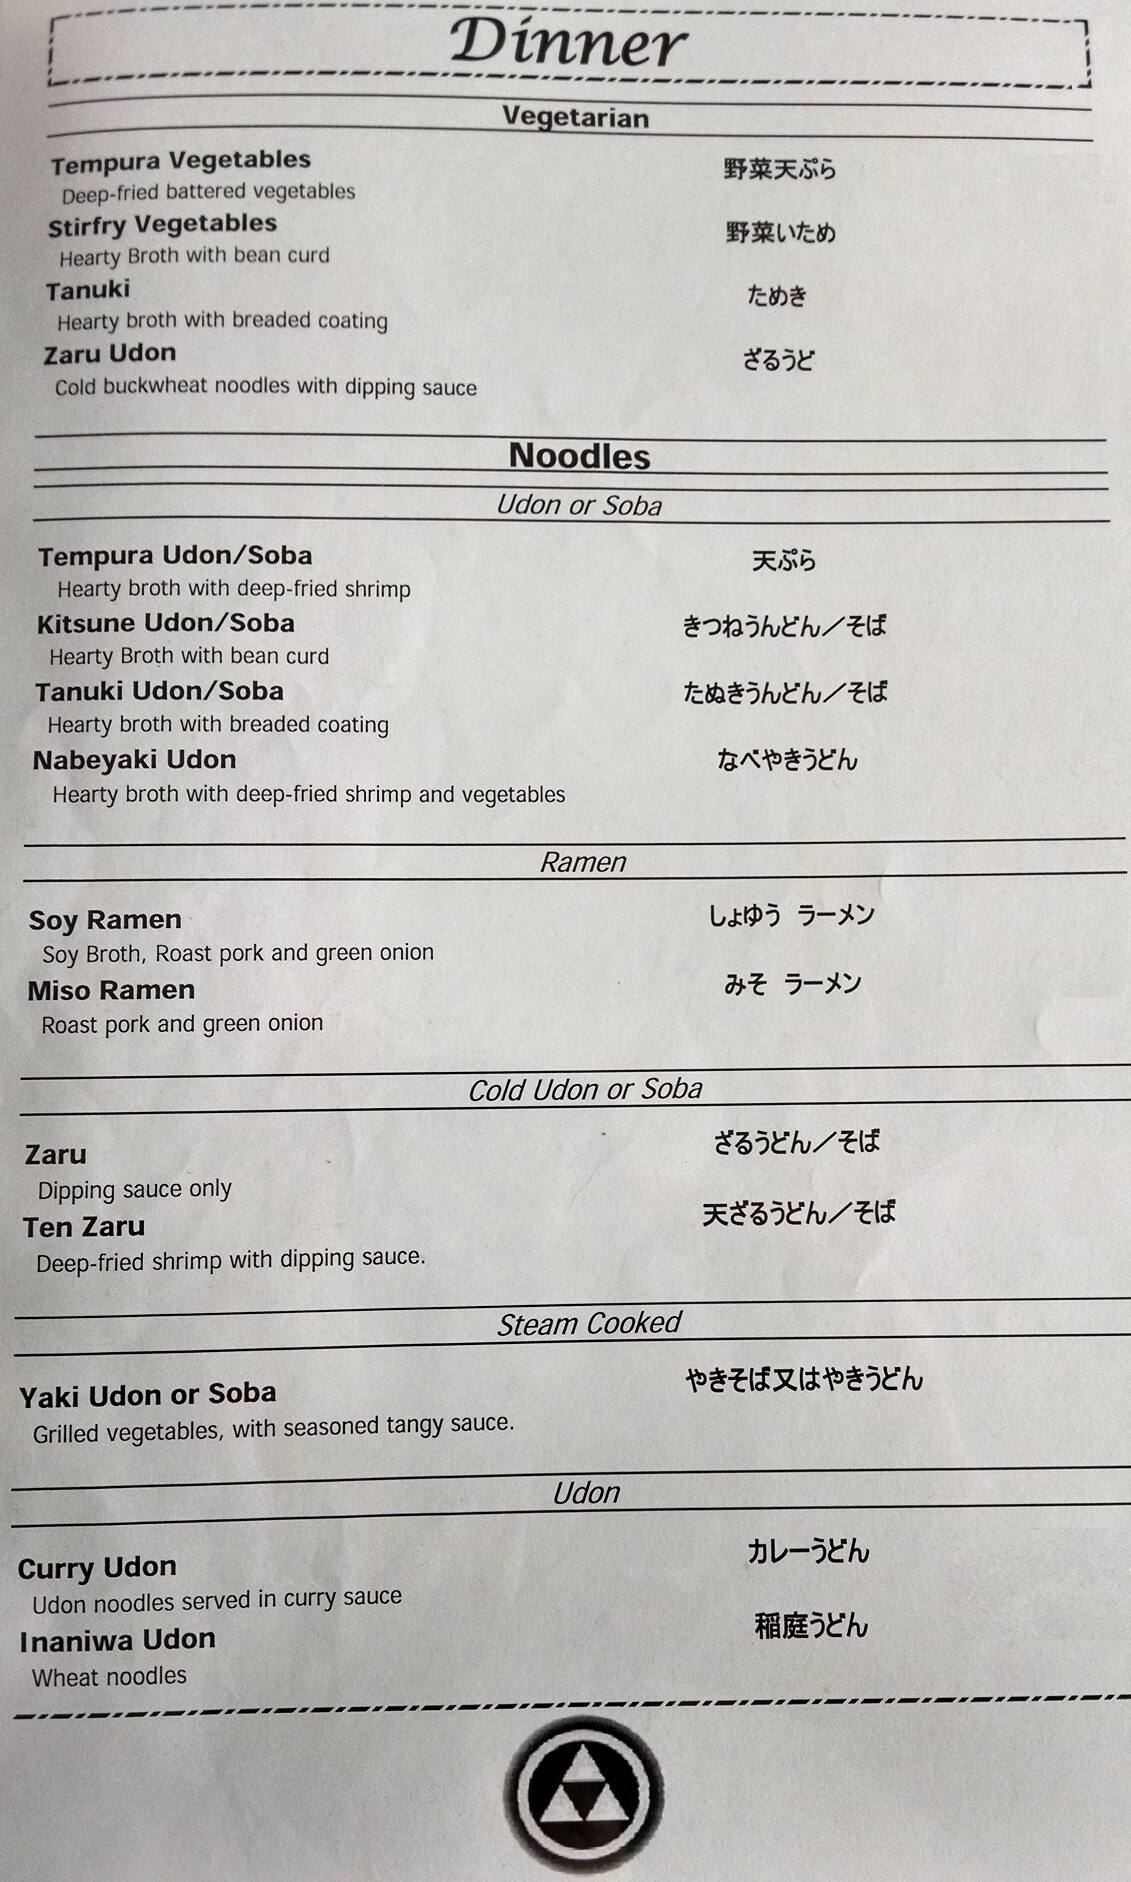 Dinner
Vegetarian
Tempura Vegetables 野菜天ぷら
Deep-fried battered vegetables
Stirfry Vegetables 野菜いため
Hearty Broth with bean curd
Tanuki ためき
Hearty broth with breaded coating
Zaru Udon ざるうど
Cold buckwheat noodles with dipping sauce
Noodles
Udon or Soba
Tempura Udon/Soba 天ぷら
Hearty broth with deep-fried shrimp
Kitsune Udon/Soba きつねうんどん／そば
Hearty Broth with bean curd
Tanuki Udon/Soba たぬきうんどん／そば
Hearty broth with breaded coating
Nabeyaki Udon なべやきうどん
Hearty broth with deep-fried shrimp and vegetables
Ramen
Soy Ramen しょゆう ラーメン
Soy Broth, Roast pork and green onion
Miso Ramen みそ ラーメン
Roast pork and green onion
Cold Udon or Soba
Zaru ざるうどん／そば
Dipping sauce only
Ten Zaru 天ざるうどん／そば
Deep-fried shrimp with dipping sauce.
Steam Cooked
Yaki Udon or Soba やきそば又はやきうどん
Grilled vegetables, with seasoned tangy sauce.
Udon
Curry Udon カレーうどん
Udon noodles served in curry sauce
Inaniwa Udon 稲庭うどん
Wheat noodles